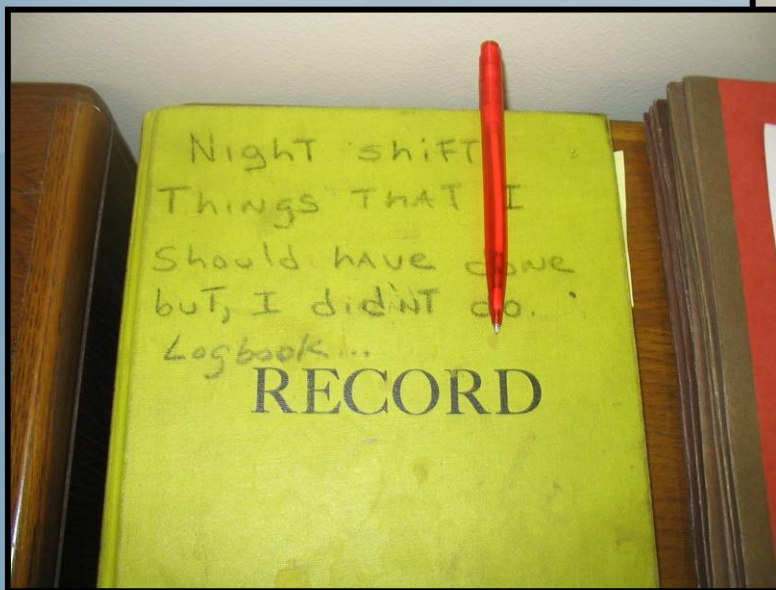 Night shift
Things that I
should have done
but, I did'nt do.
Logbook...
RECORD